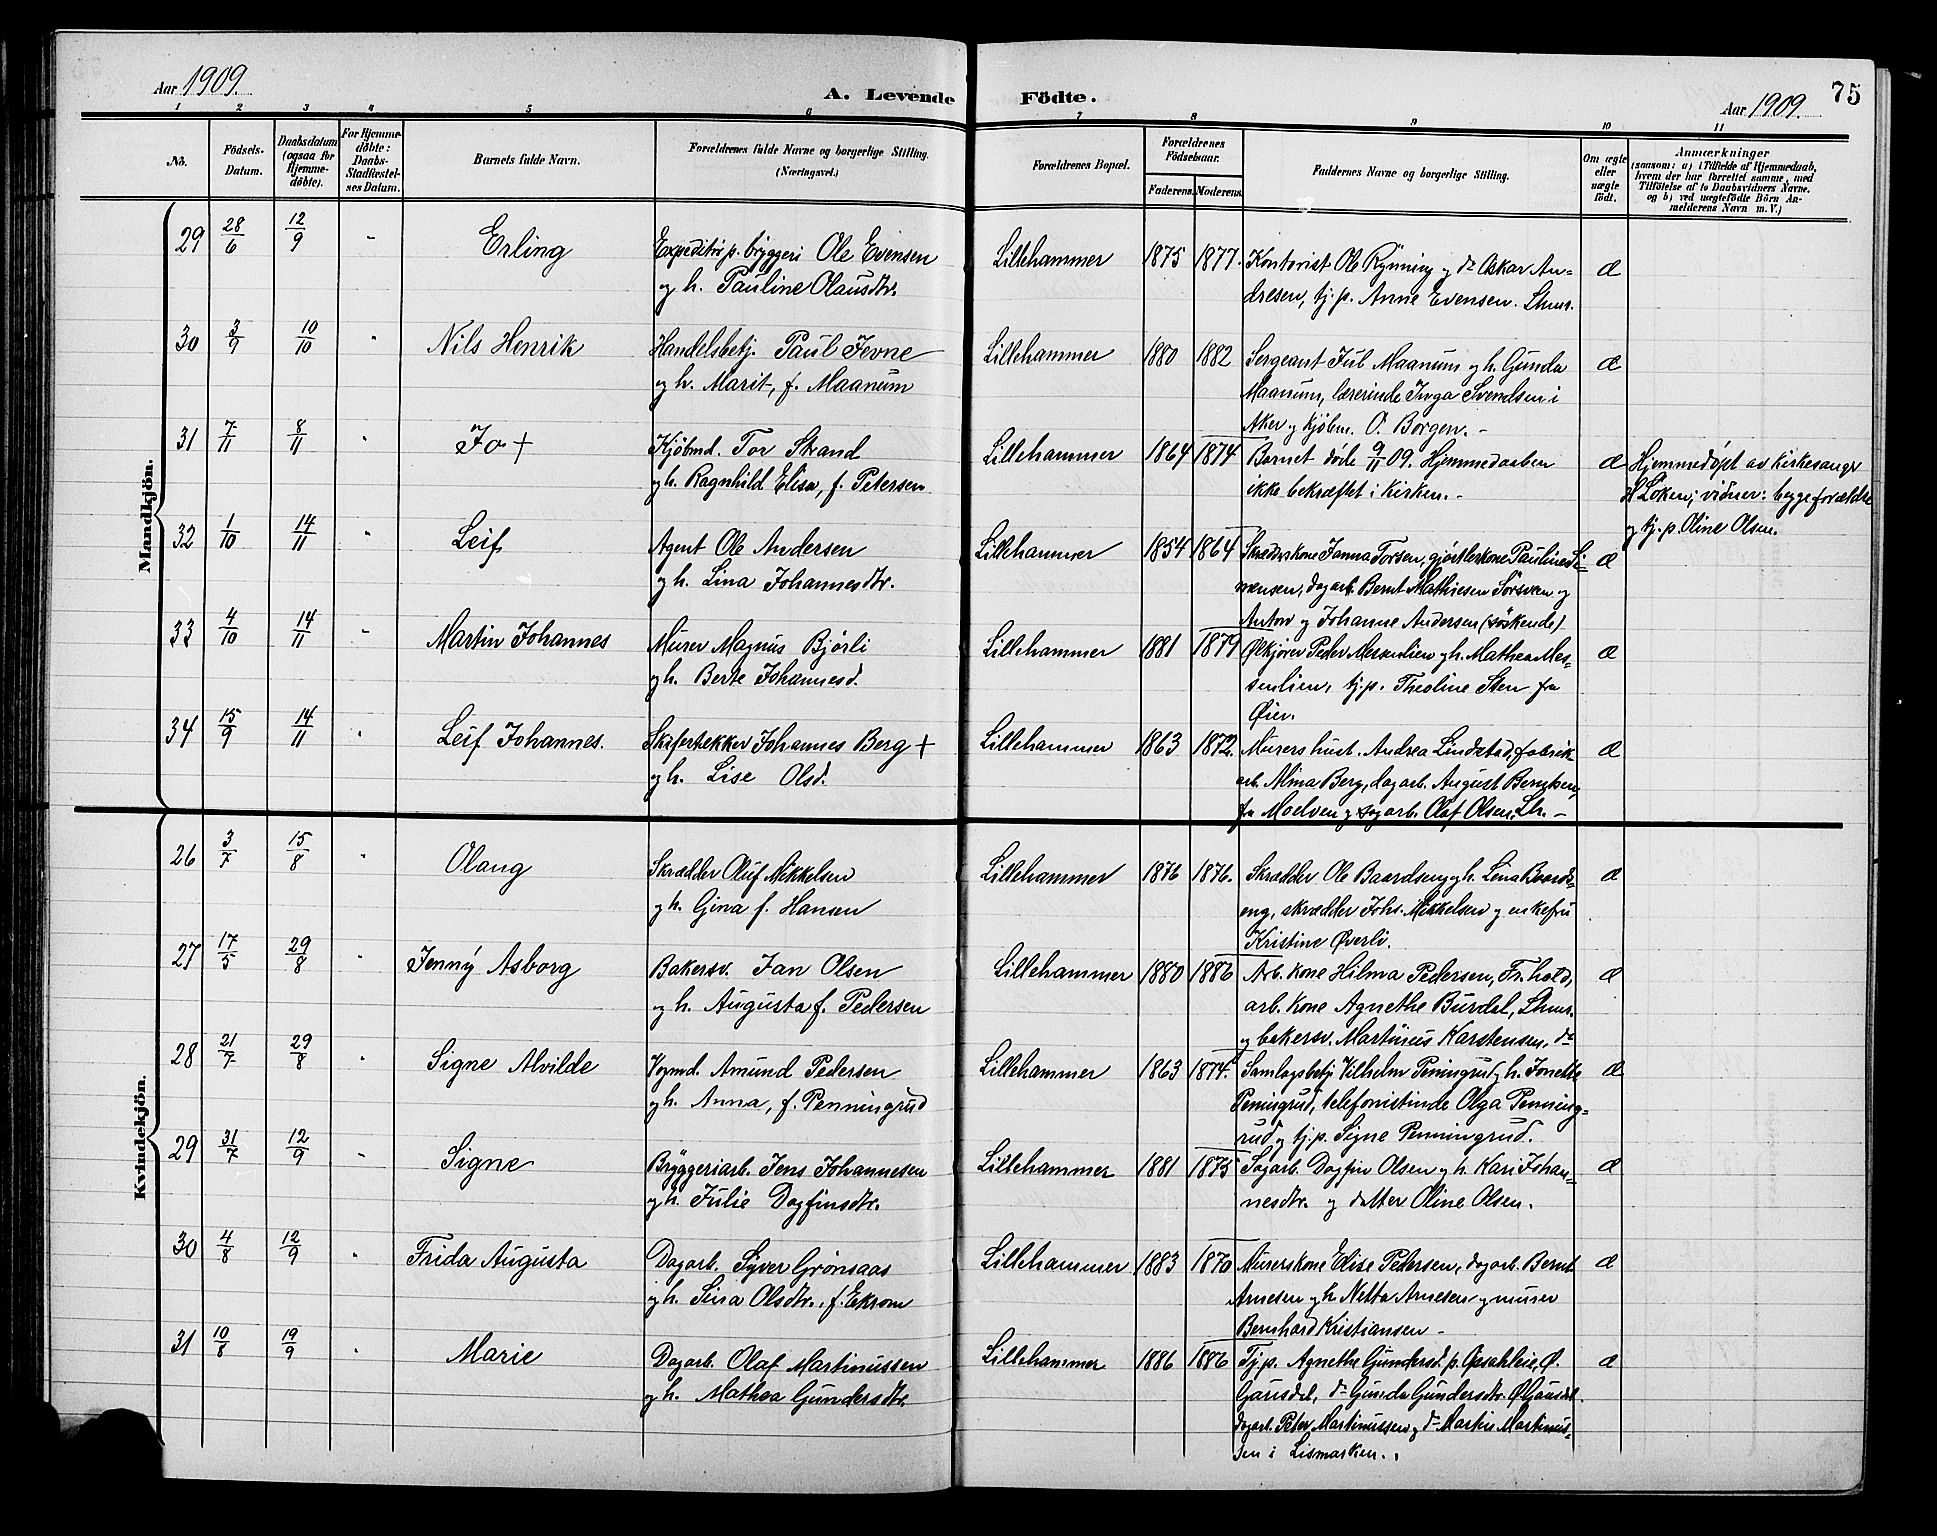 Aar 1909.
A. Levende
Födte.
Aar 1909.
75
1 2 3 4 5 6 7 8 9 10 11
No.
Födsels-
Datum.
Daabsdatum
(ogsaa for
Hjemme-
döbte).
For Hjemme-
döbte:
Daabs-
Stadfæstel-
ses Datum.
Barnets fulde Navn.
Forældrenes fulde Navne og borgerlige Stilling.
(Næringsvei.)
Forældrenes Bopæl.
Forældrenes
Födselsaar.
Faderens. Moderens.
Faddernes Navne og borgerlige Stilling.
Om ægte
eller
uægte
födt.
Anmærkninger
(saasom: a) i Tilfælde af Hjemmedaab,
hvem der har forrettet samme, med
Tilföielse af to Daabsvidners Navne.
og b) ved uægtefödte Börn An-
melderens Navn m. V.)
Mandkjön.
29 28/6 12/9 - Erling
Expeditör p. bryggeri Ole Evensen
og h. Pauline Olausdtr.
Lillehammer 1875 1877.
Kontorist Ole Rynning og do Oskar An-
dresen, tj.p. Anne Evensen. Lhmr.
æ
30 3/9 10/10 " Nils Henrik
Handelsbetj. Paul Jevne
og h. Marit, f. Maanum
Lillehammer 1880 1882
Sergeant Jul Maanum og h. Gunda
Maanum, lærerinde Inga Svendsen i
Aker og kjøbm. O. Borgen. -
æ
31 7/11 8/11 " Jo +
Kjöbmd. Tor Strand
og h. Ragnhild Elise, f. Petersen
Lillehammer 1864 1874
Barnet döde 9/11 09. Hjemmedaaben
ikke bekræftet i kirken. -
æ
Hjemmedöpt av kirkesanger
H Løken; vidner: begge forældre
og tj.p. Oline Olsen.
32 1/10 14/11 " Leif
Agent Ole Andersen
og h. Lina Johannesdtr.
Lillehammer 1854 1864
Skrædderskone Janna Torsen, gjørtlerkone Pauline Si-
mensen, dagarb. Bernt Mathiesen Sorsveen og
Anton og Johanne Andersen (söskende)
æ
33 4/10 14/11 - Martin Johannes
Murer Magnus Bjørli
og h. Berte Johannesd.
Lillehammer 1881 1879
Ølkjører Peder Messenlien og h. Mathea Mes-
senlien, tj.p. Theoline Sten fra
Øier.
æ
34 15/9 14/11 " Leif Johannes.
Skifertækker Johannes Berg +
og h. Lise Olsd.
Lillehammer 1863 1872.
Murers hust. Andrea Lindstad, fabrik-
arb. Alma Berg, dagarb. August Berntsen,
fra Moelven og dagarb. Olaf Olsen. Lhr. -
æ
Kvindekjön.
26 3/7 15/8 " Olaug
Skrædder Oluf Mikkelsen
og h. Gina f. Hansen
Lillehammer 1876 1876.
Skrædder Ole Baardseng og h. Lena Baards-
eng, skrædder Johs. Mikkelsen og enkefru
Kristine Øverli.
æ
27 17/5 29/8 " Jenny Asborg
Bakersv. Jan Olsen
og h. Augusta f. Pedersen
Lillehammer 1880 1886
Arb. kone Hilma Pedersen, Fr.hald,
arb. kone Agnethe Burdal, Lhmr.
og bakersv. Martinus Karstensen, do
æ
28 21/7 29/8 " Signe Alvilde
Vognmd. Amund Pedersen
og h. Anna, f. Penningrud
Lillehammer 1863 1874.
Samlagsbetj. Vilhelm Peningrud og h. Jonette
Peningrud, telefonistinde Olga Penning-
rud og tj.p. Signe Penningrud.
æ
29 31/7 12/9 - Signe
Bryggeriarb. Jens Johannesen
og h. Julie Dagfinsdtr.
Lillehammer 1881 1875
Sagarb. Dagfin Olsen og h. Kari Johan-
nesdtr. og datter Oline Olsen.
æ
30 4/8 12/9 " Frida Augusta
Dagarb. Syver Grönsaas
og h. Sina Olsdtr., f. Ekrom
Lillehammer 1883 1870
Murerskone Elise Pedersen, dagarb. Bernt
Arnesen og h. Netta Arnesen og murer
Bernhard Kristiansen -
æ
31 10/8 19/9 " Marie
Dagarb. Olaf Martinussen
og h. Mathea Gundersdtr.
Lillehammer 1886 1886
Tj.p. Agnethe Gundersd. p. Ø.
Gausdal, do Gunda Gundersdtr. Ø. Gausdal.
dagarb. Peter Martinussen og do Martin Martinus-
sen i Lismarken.
æ